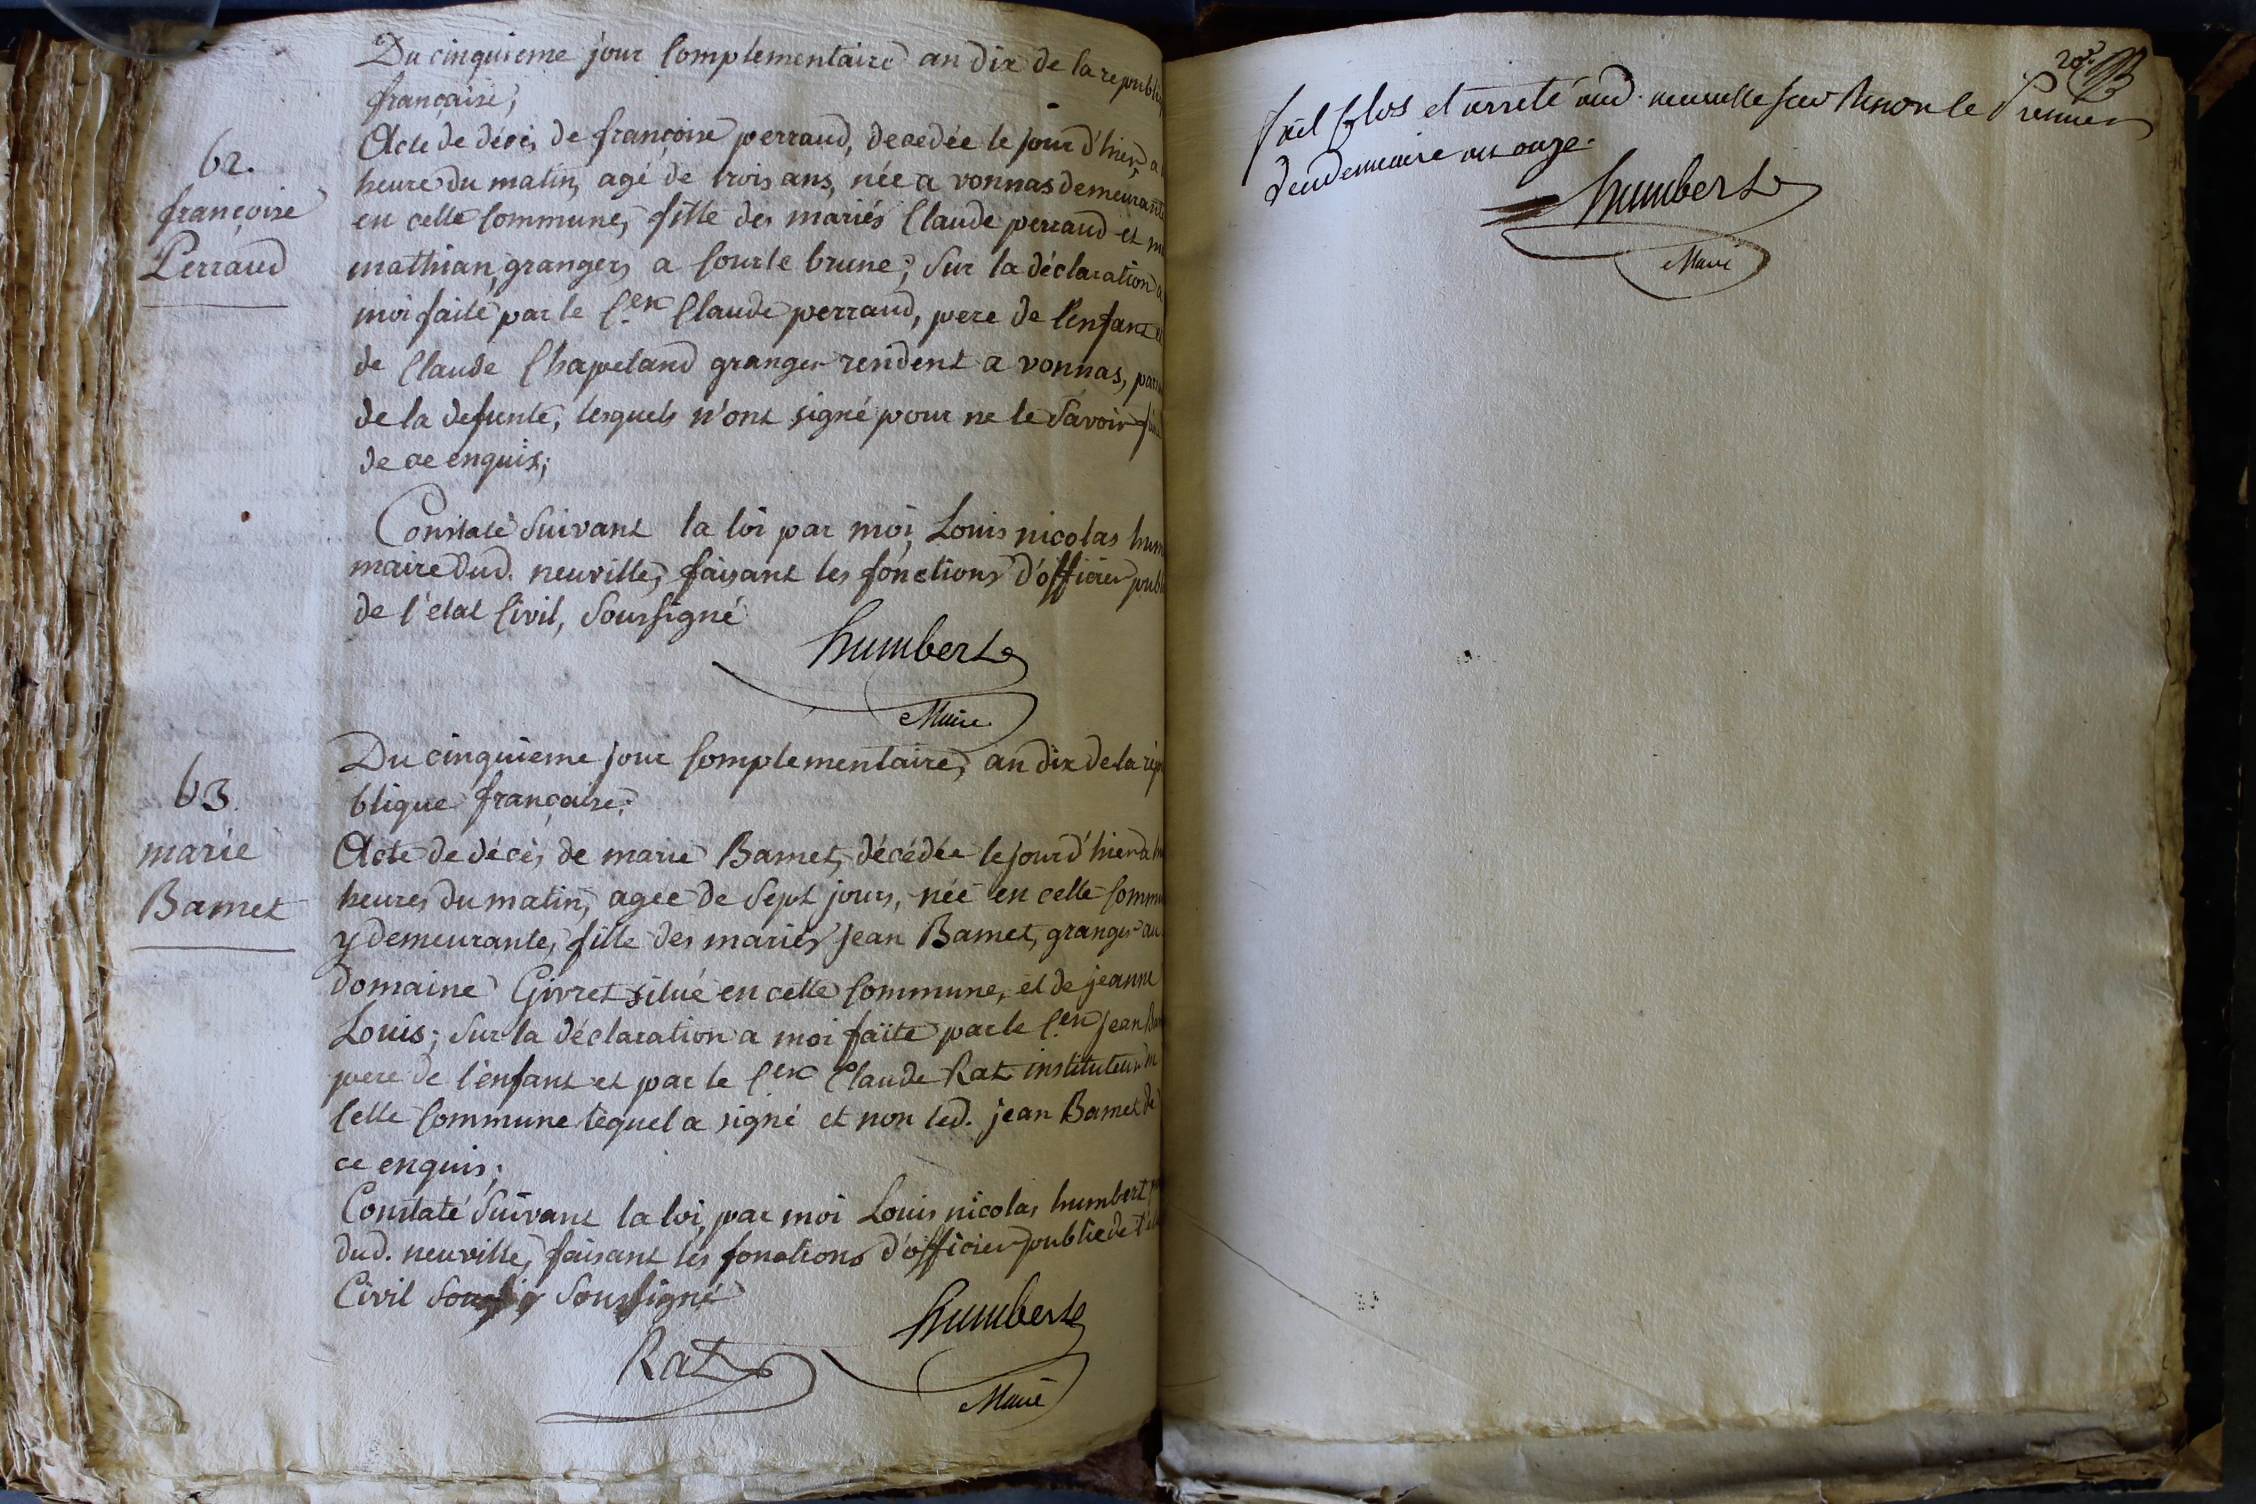 Du cinquieme jour complementaire an dix de la republi
françaisè;
62.
françoise
Perraud
Acte de décès de françoise perraud, decedée le jour d'hier, a
heure du matin, agé de trois ans, née a vonnas demeurante
en cette Commune, fille des mariés Claude perraud et m
mathian, granger, a Courte brune; Sur la déclaration a
moi faite par le C.en Claude perraud, pere de l'enfant et
de Claude Chapeland granger rendent a vonnas, par
de la defunte, lesquels n'ont signé pour ne le Savoir f
de ce enquis;
Constaté Suivant la loi par moi Louis nicolas hum
maire dud. neuville, faisant les fonctions d'officier publi
de l'état Civil, Soussigné
humbert
Maire
63.
marie
Bamet
Du cinquieme jour Complementaire, an dix de la répu
blique françaisè;
Acte de décès de marie Bamet, décédée le jour d'hier a
heures du matin, agée de Sept jours, née en cette Commu
y demeurante, fille des mariés jean Bamet, granger au
domaine Givret situé en cette Commune, et de jeanne
Louis; Sur la déclaration a moi faite par le C.en jean Bam
pere de l'enfant et par le C.en Claude Rat instituteur en
Cette Commune lequel a signé et non led. jean Bamet de
ce enquis;
Constaté Suivant la loi, par moi Louis nicolas humbert
dud. neuville, faisant les fonctions d'officier public de l'
Civil Soussigné
Rat
humbert
Maire
20.e
fait Clos et arrete aud. neuville sur Renon le Premier
Vendemiaire an onze.
humbert
Maire